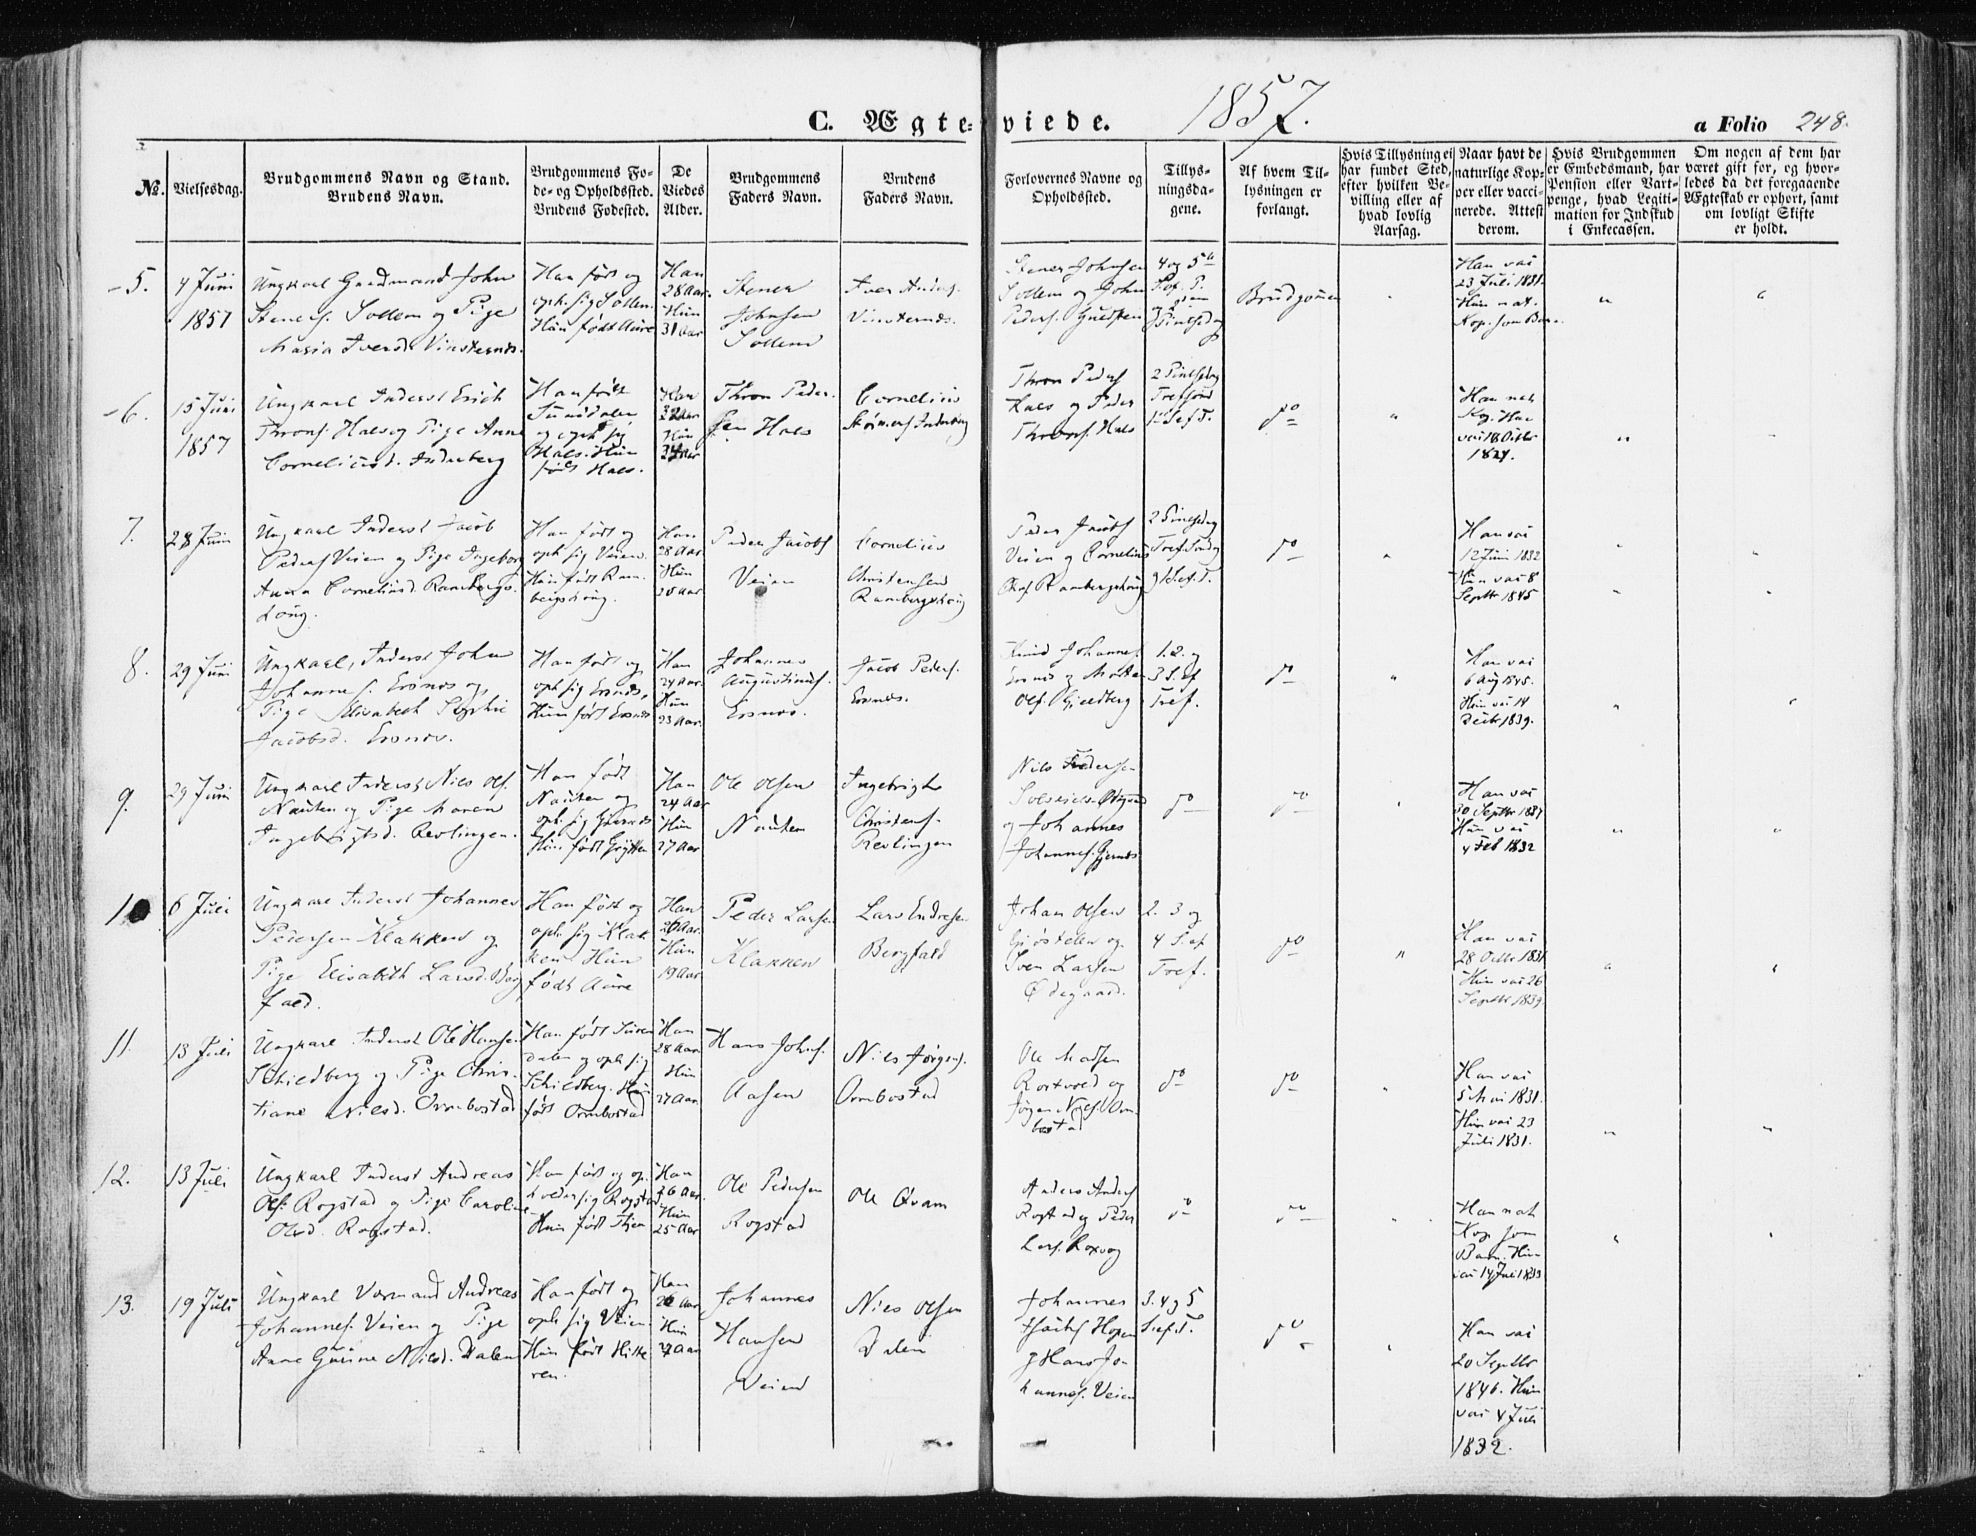 C. Ægte-
viede.
1857.
a Folio 248.
No.
Vielsesdag.
Brudgommens Navn og Stand.
Brudens Navn.
Brudgommens Fø-
de- og Opholdssted.
Brudens Fødested.
De
Viedes
Alder.
Brudgommens
Faders Navn.
Brudens
Faders Navn.
Forlovernes Navne og
Opholdssted.
Tillys-
ningsda-
gene.
Af hvem Til-
lysningen er
forlangt.
Hvis Tillysning ei
har fundet Sted,
efter hvilken Be-
villing eller af
hvad lovlig
Aarsag.
Naar havt de
naturlige Kop-
per eller vacci-
nerede. Attest
derom.
Hvis Brudgommen
er Embedsmand, har
Pension eller Vart-
penge, hvad Legiti-
mation for Indskud
i Enkecassen.
Om nogen af dem har
været gift før, og hvor-
ledes da det foregaaende
Ægteskab er ophørt, samt
om lovligt Skifte
er holdt.
5.
4 Juni
1857
Ungkarl Gudmand John
Steners. Sollem og Pige
Maria Iversd. Vinsternes.
Han født og
oph. sig Sollem.
Hun født Aure
Han
28 Aar.
Hun
31 Aar
Stener
Johnsen
Sollem
Iver Anders.
Vinsternes.
Stener Johnsen
Sollem og John
Peders.
4 og 5te
Brudgommen
Han vac
23 Juli 1831.
Hun nat.
Kop. som Barn.
6.
15 Juni
1857
Ungkarl Inderst Erich
Throns. Hals og Pige Anne
Corneliusd. Inderberg
Han født
Sunddalen
og oph sig
Hals. Hun
født Hals.
Han
Aar
Hun
Aar
Thron Peder-
sen Hals
Cornelius
Thron Peders
Hals og Peder
Throns. Hals
2 Pintsedag
do
Han nat
Kop. Hun
vac 18 Octbr
7.
28 Juni
Ungkarl Inderst Jacob
Peders Veien og Pige Ingeborg
Anna Corneliusd. Rambergs-
Han født og
oph sig Veien.
Hun født Ram-
Han
28 Aar
Hun
Aar
Peder Jacobs
Veien
Cornelius
Christensen
Peder Jacobs
Veien og Cornelius
2 Pintsedag
do
Han vac
12 Juni 1832
Hun vac 8
Septbr 1845
8.
29 Juni
Ungkarl, Inderst John
Johannes. Ersnes og
Pige Elisabeth Sophie
Jacobsd. Ersnes.
Han født og
oph sig Ersnes,
Hun født Ersnes
Han
24 Aar.
Hun
23 Aar.
Johannes
Augustinus.
Ersnes.
Jacob Peders.
Ersnes.
Knud Johannes.
Ersnes og Morten
Ols. Gjeldberg
1. 2. og
3 S. ef
Tref.
do
Han vac
6 Aug 1845.
Hun vac 14
Decbr 1839.
9.
29 Juni
Ungkarl Inderst Nils Ols.
Nausten og Pige Maren
Ingebrigtsd. Revlingen.
Han født
Nausten og
oph. sig
Hun født Grytten
Han
24 Aar
Hun
27 Aar
Ole Olsen
Nausten
Ingebrigt
Christens.
Revlingen
Nils Pedersen
og Johannes
Johannes. Gjernes
do
do
Han vac
30 Septbr 1837
Hun vac
4 Feb 1832
10
6 Juli
Ungkarl Inderst Johannes
Pedersen Klakken og
Pige Elisabeth Larsd. Berg
fald.
Han født og
oph. sig Klak-
ken Hun
født Aure
Han
26 Aar.
Hun
19 Aar
Peder Larsen
Klakken
Lars Endresen
Bergfald
Johan Olsen
og
Sven Larsen
Ødegaard.
2. 3 og
4 S. ef
Tref.
do
Han vac
28 Octbr 1831
Hun vac 26
Septbr 1839.
11.
13 Juli
Ungkarl Inderst Ole Hansen
Schiedberg og Pige Chris-
tiane Nilsd. Ormbostad
Han født Suren
dalen og oph sig
Schiedberg. Hun
født Ormbostad
Han
28 Aar
Hun
27 Aar
Hans Johns.
Aasen
Nils Jørgens.
Ormbostad
Ole Madsen
Rostvold og
Jørgen Niels. Orm-
bostad
do
do
Han vac
5 Mai 1831.
Hun vac 23
Juli 1831.
12.
13 Juli
Ungkarl Inderst Andreas
Ols. Rogstad og Pige Caroline
Olsd. Rogstad.
Han født og op-
holder sig Rogstad
Hun født
Han
26 Aar.
Hun
25 Aar
Ole Pedersen
Rogstad
Ole Qvam
Anders Anders
Rogstad og Peder
Lars. Loxvog
do
do
Han nat
Kop. som
Barn. Hun
vac 14 Juli 1833
13.
19 Juli
Ungkarl Andreas
Johannes. Veien og Pige
Anne Gurine Nilsd. Dalen
Han født og
oph. sig Veien.
Hun født Hitte
ren.
Han
26 Aar
Hun
27 Aar
Johannes
Hansen
Veien
Nils Olsen
Dalen
Johannes
Hopen
og Hans Jo-
hannes. Veien
3. 4 og 5
S. ef. T.
do
Han vac
20 Septbr
1846. Hun
vac 4 Juli
1832.